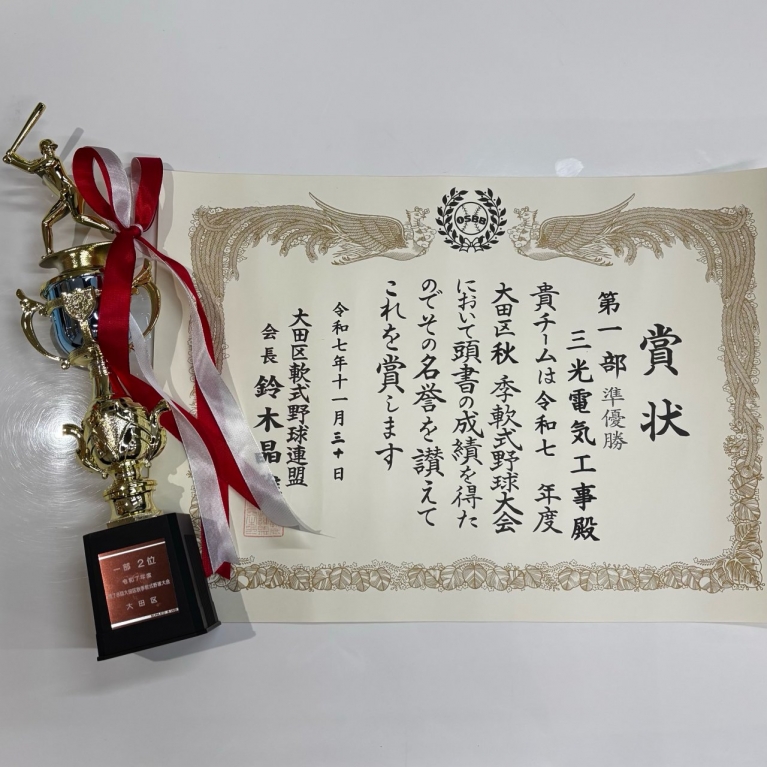 OSBB
賞状
第一部 準優勝
三光電気工事殿
貴チームは令和七 年度
大田区秋 季軟式野球大会
において頭書の成績を得た
のでその名誉を讃えて
これを賞します
令和七年十一月三十日
大田区軟式野球連盟
会長 鈴木晶
一部 2位
令和7年度
大田区